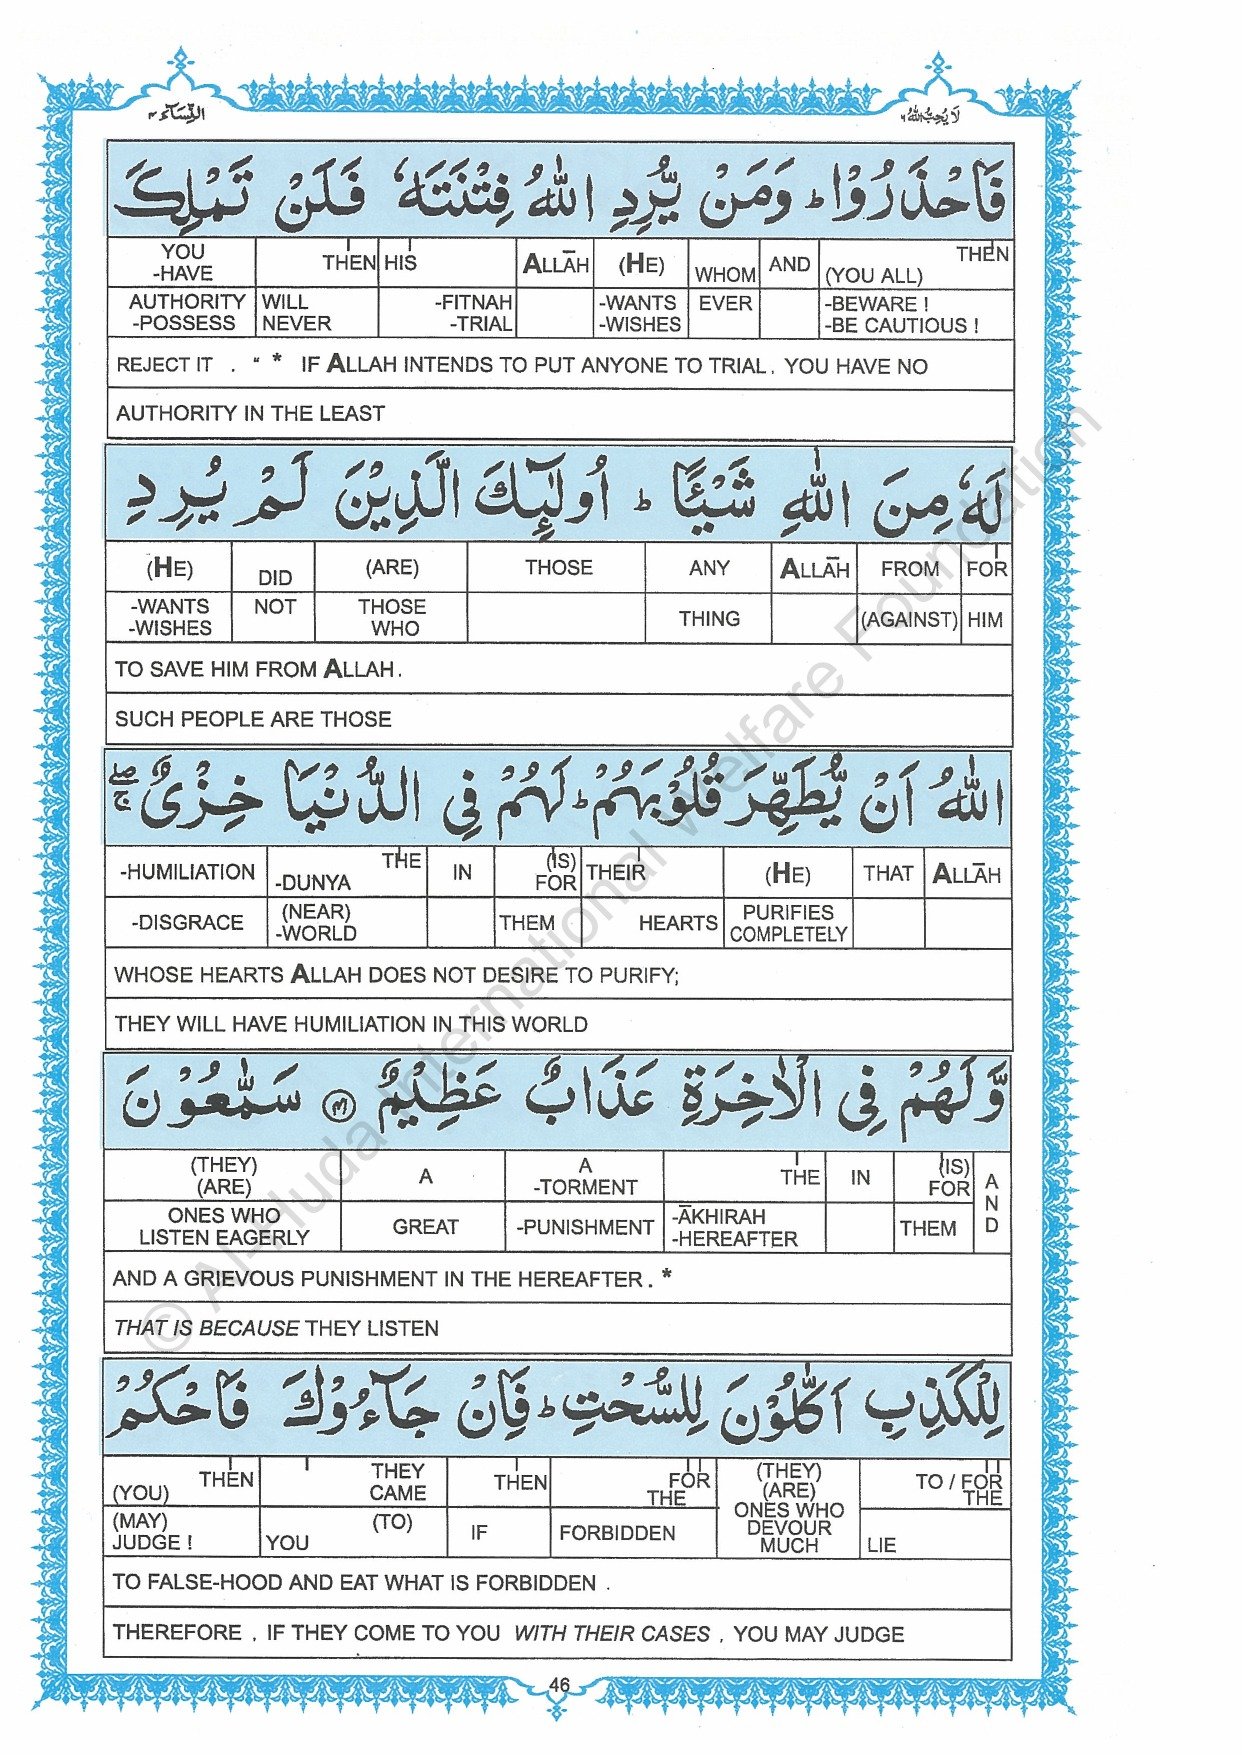 النِّسَآء ٤
لَا يُحِبُّ اللّٰهُ ٦
فَاحْذَرُوْا ؕ وَمَنْ يُّرِدِ اللّٰهُ فِتْنَتَهٗ فَلَنْ تَمْلِكَ
YOU -HAVE THEN HIS ALLĀH (HE) WHOM AND (YOU ALL) THEN
AUTHORITY -POSSESS WILL NEVER -FITNAH -TRIAL -WANTS -WISHES EVER -BEWARE ! -BE CAUTIOUS !
REJECT IT . “ * IF ALLAH INTENDS TO PUT ANYONE TO TRIAL. YOU HAVE NO
AUTHORITY IN THE LEAST
لَهٗ مِنَ اللّٰهِ شَيْـًٔا ؕ اُولٰٓئِكَ الَّذِيْنَ لَمْ يُرِدِ
(HE) DID (ARE) THOSE ANY ALLĀH FROM FOR
-WANTS -WISHES NOT THOSE WHO THING (AGAINST) HIM
TO SAVE HIM FROM ALLAH.
SUCH PEOPLE ARE THOSE
اللّٰهُ اَنْ يُّطَهِّرَ قُلُوْبَهُمْ ؕ لَهُمْ فِى الدُّنْيَا خِزْىٌ ۚۖ
-HUMILIATION -DUNYA THE IN (IS) FOR THEIR (HE) THAT ALLĀH
-DISGRACE (NEAR) -WORLD THEM HEARTS PURIFIES COMPLETELY
WHOSE HEARTS ALLAH DOES NOT DESIRE TO PURIFY;
THEY WILL HAVE HUMILIATION IN THIS WORLD
وَّلَهُمْ فِى الْاٰخِرَةِ عَذَابٌ عَظِيْمٌ ﴿٤١﴾ سَمّٰعُوْنَ
(THEY) (ARE) A A -TORMENT THE IN (IS) FOR AND
ONES WHO LISTEN EAGERLY GREAT -PUNISHMENT -ĀKHIRAH -HEREAFTER THEM
AND A GRIEVOUS PUNISHMENT IN THE HEREAFTER. *
THAT IS BECAUSE THEY LISTEN
لِلْكَذِبِ اَكّٰلُوْنَ لِلسُّحْتِ ؕ فَاِنْ جَآءُوْكَ فَاحْكُمْ
(YOU) THEN THEY CAME THEN FOR THE (THEY) (ARE) ONES WHO DEVOUR MUCH TO / FOR THE
(MAY) JUDGE ! YOU (TO) IF FORBIDDEN LIE
TO FALSE-HOOD AND EAT WHAT IS FORBIDDEN .
THEREFORE , IF THEY COME TO YOU WITH THEIR CASES , YOU MAY JUDGE
46
© Al-Huda International Welfare Foundation